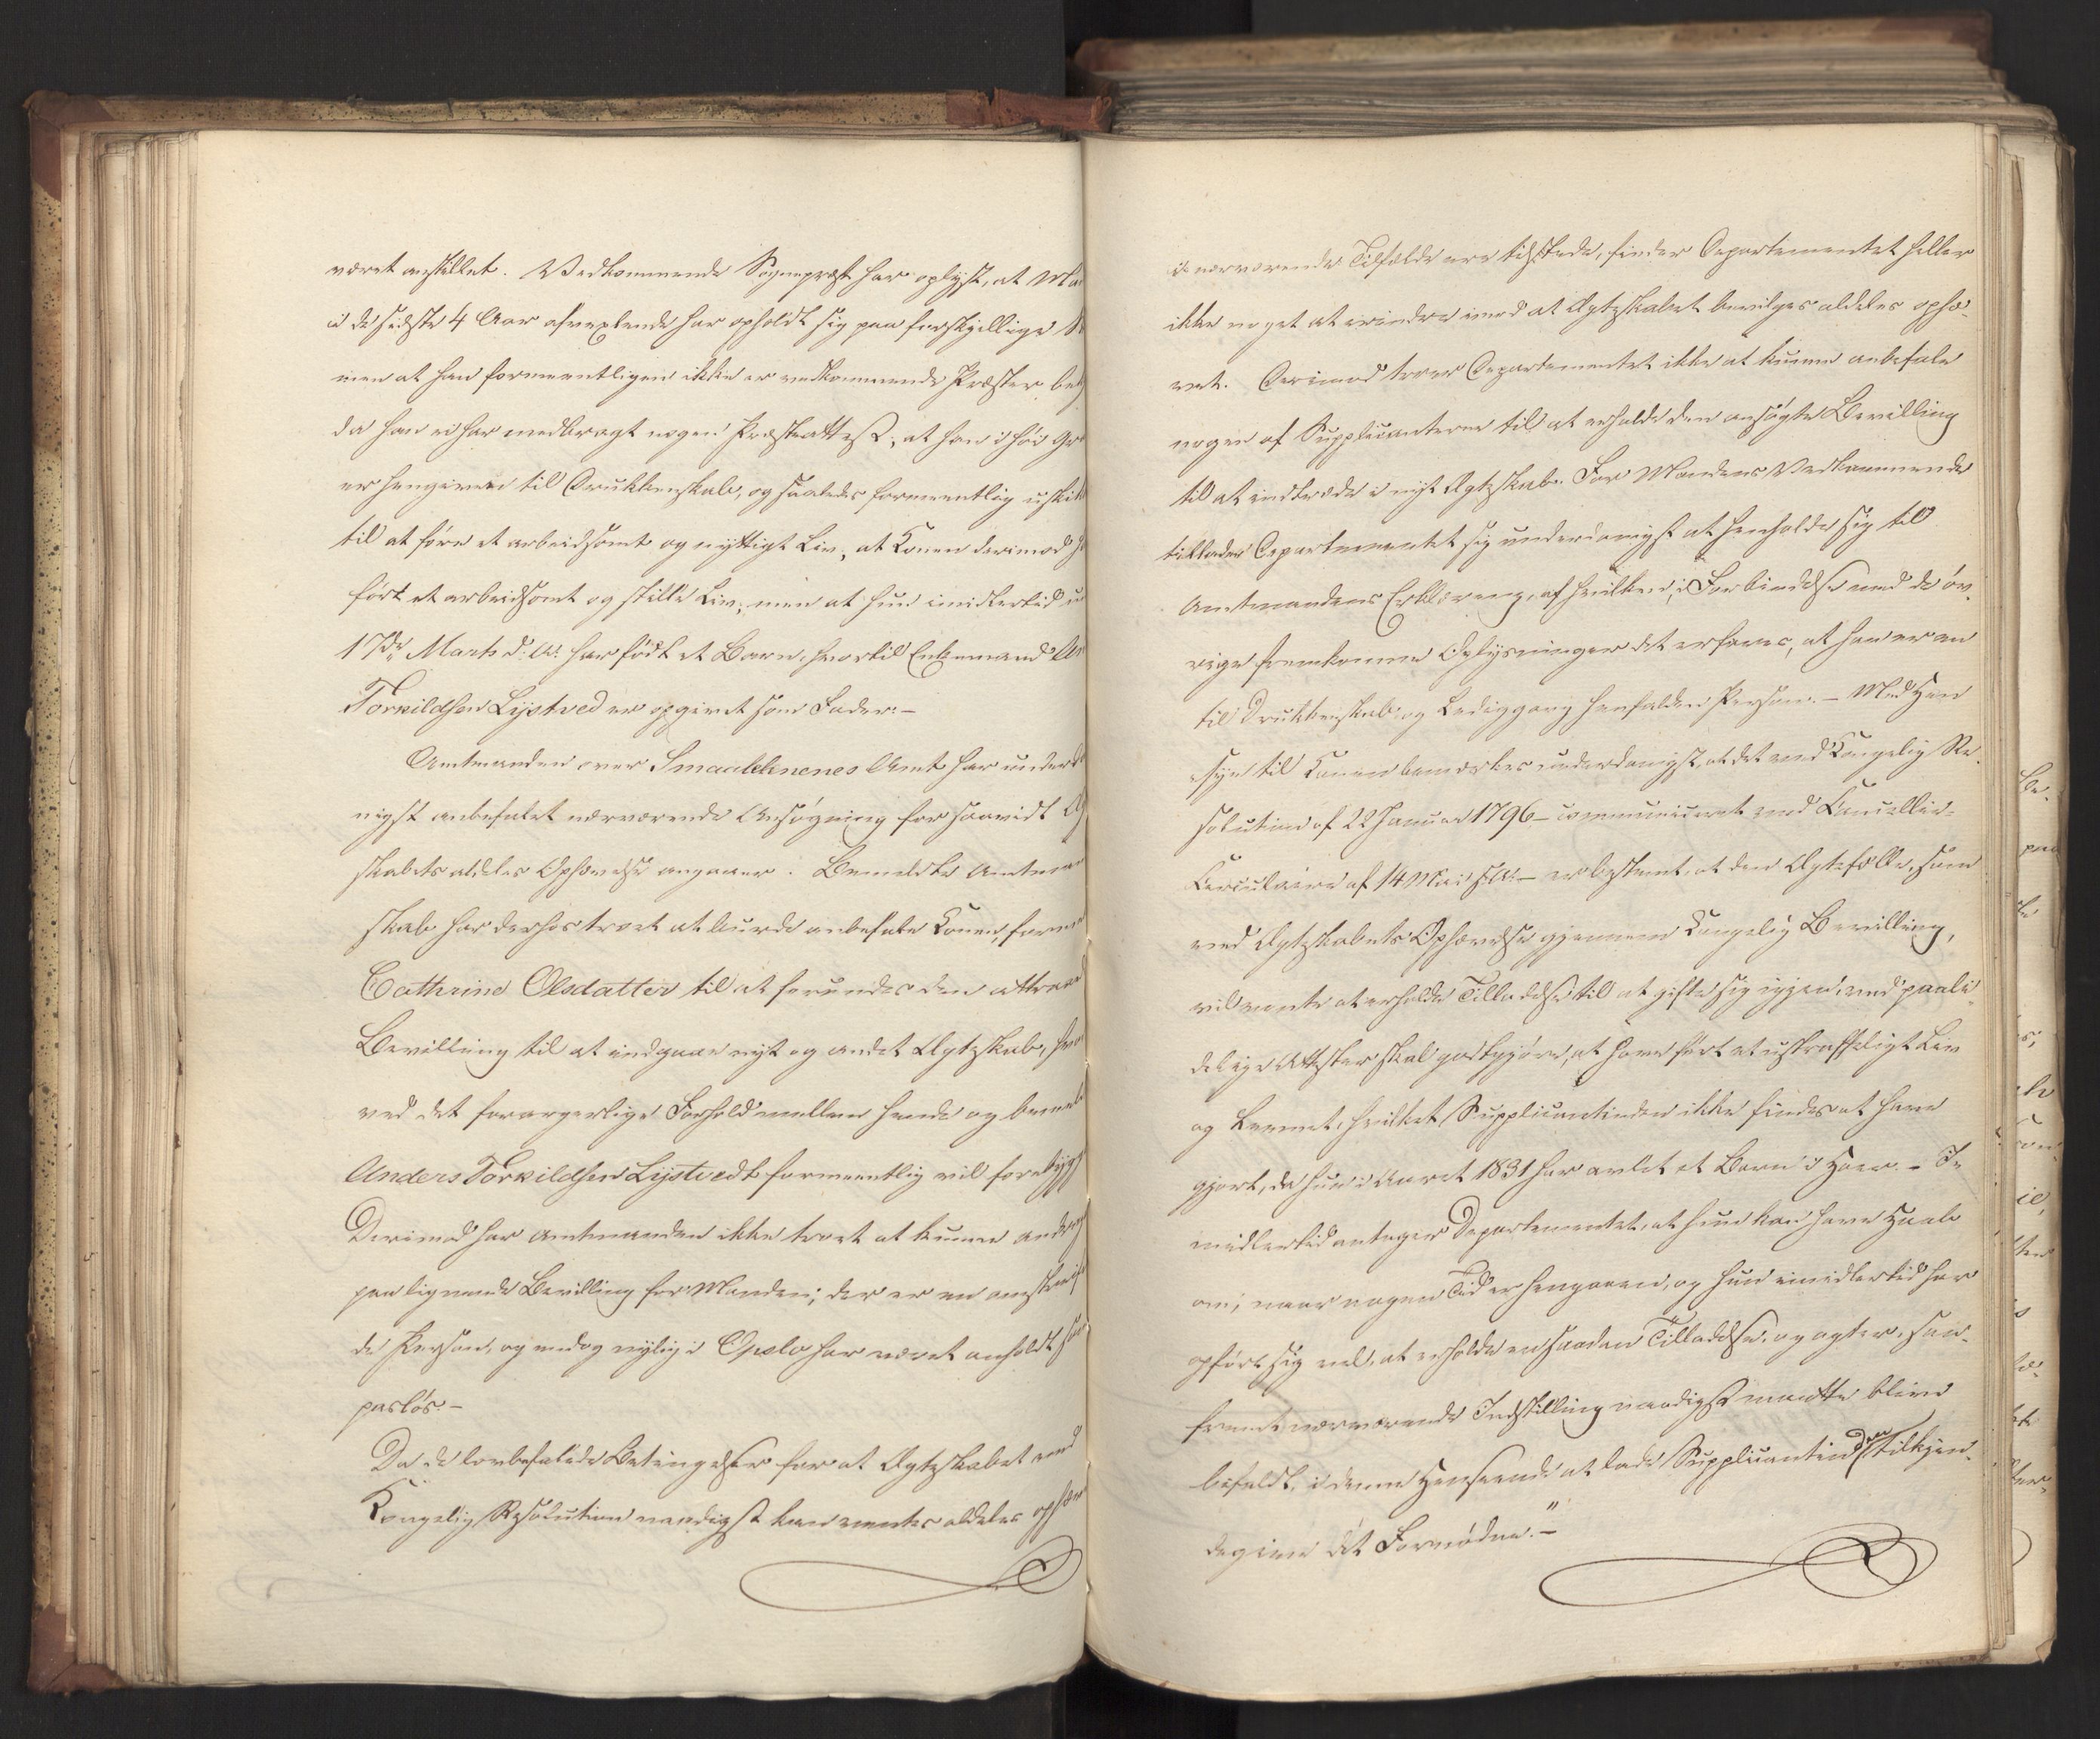 været anstillet. Vedkommende Sognepræst har oplyst, at Ma
i de sidste 4 Aar afvexlende har opholdt sig paa forskjellige
men at han formeentligen ikke er vedkommende Præster be
da han ei har medbragt nogen Præsteattest; at han i høi Gr
er hengiven til Drukkenskab, og saaledes formeentlig uskik
til at føre et arbeidsomt og nyttigt Liv; at Konen derimod h
ført et arbeidsomt og stille Liv, men at hun imidlertid u
17de Marts d. A. har født et Barn, hvortil Enkemand An
Torkildsen Lystved er opgivet som Fader.–
Amtmanden over Smaalehnenes Amt har underd
nigst anbefalet nærværende Ansøgning forsaavidt Æg
skabets aldeles Ophævelse angaaer. Bemeldte Amtman
skab har derhos troet at burde anbefale Konen, forme
Cathrine Olsdatter til at forundes den attraaed
Bevilling til at indgaae nyt og andet Ægteskab, hvor
ved det forargerlige Forhold mellem hende og bemel
Anders Torkildsen Lystvedt formeentlig vil forebygg
Derimod har Amtmanden ikke troet at kunne andrag
paa lignende Bevilling for Manden; der er en omstreif
de Person, og endog nylig i Opslo har været anholdt som
pasløs.–
Da de lovbefalede Betingelser for at Ægteskabet ved
Kongelig Resolution naadigst kan ventes aldeles ophæv
i nærværende Tilfælde ere tilstede, finder Departementet heller
ikke noget at erindre imod at Ægteskabet bevilges aldeles ophæ-
vet. Derimod troer Departementet ikke at kunne anbefale
nogen af Supplicanterne til at erholde den ansøgte Bevilling
til at indtræde i nyt Ægteskab. For Mandens Vedkommende
tillader Departementet sig underdanigst at henholde sig til
Amtmandens Erklæring, af hvilken, i Forbindelse med de øv-
rige fremkomne Oplysninger det erfares, at han er en
til Drukkenskab og Lediggang henfalden Person.– Med Hen
syn til Konen bemærkes underdanigst, at det ved Kongelig Re-
solution af 22 Januar 1796 – communiceret ved Cancellie-
Circulaire af 14 Mai s. A. – er bestemt, at den Ægtefælle, som
ved Ægteskabets Ophævelse gjennem Kongelig Bevilling,
vil vente at erholde Tilladelse til at gifte sig igjen, ved paali-
delige Attester skal godtgjøre, at have ført et ustraffeligt Liv
og Levnet, hvilket Supplicantinden ikke findes at have
gjort, da hun i Aaret 1831 har avlet et Barn i Hoer.– I-
midlertid antager Departementet, at hun kan have Haab
om, naar nogen Tid er hengaaen, og hun imidlertid har
opført sig vel, at erholde en saadan Tilladelse, og agter, saa-
fremt nærværende Indstilling naadigst maatte blive
bifaldt, i denne Henseende at lade Supplicantinden Tilkjen-
degive dét Fornødne.–"